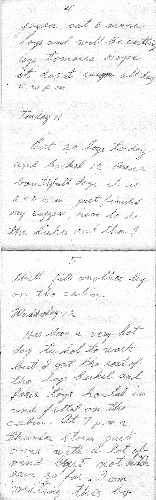 4
supper cut 6 more
logs and will be cutting
logs tomorrow I hope
it don't rain all day
p.m.
Tuesday 11
Cut 20 logs today
and hauled 12
beautiful logs it is
p.m. just finished
my supper, have to do
the dishes and then I
5
Will put another log
on the cabin.
Wednesday 12
Has been a very hot
day to hot to work
but I got the rest of
the logs hauled and
four logs hauled in
and fitted on the
cabin. At 7 p.m. a
thunder storm just
came with a lot of
wind but not much
rain so far. I am
writing this by